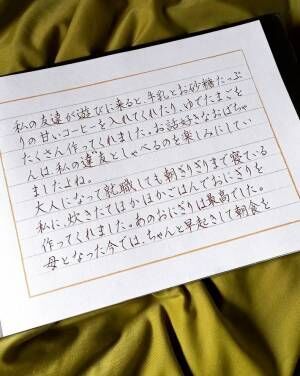 私の友達が遊びに来ると、牛乳とお砂糖たっぷ
りの甘いコーヒーを入れてくれたり、ゆでたまごを
たくさん作ってくれました。お話好きなおばちゃ
んは、私の友達としゃべるのを楽しみにしてい
ましたよね。
大人になって就職しても朝ぎりぎりまで寝ている
私に、炊きたてほかほかごはんでおにぎりを
作ってくれました。あのおにぎりは最高でした。
母となった今では、ちゃんと早起きして朝食を